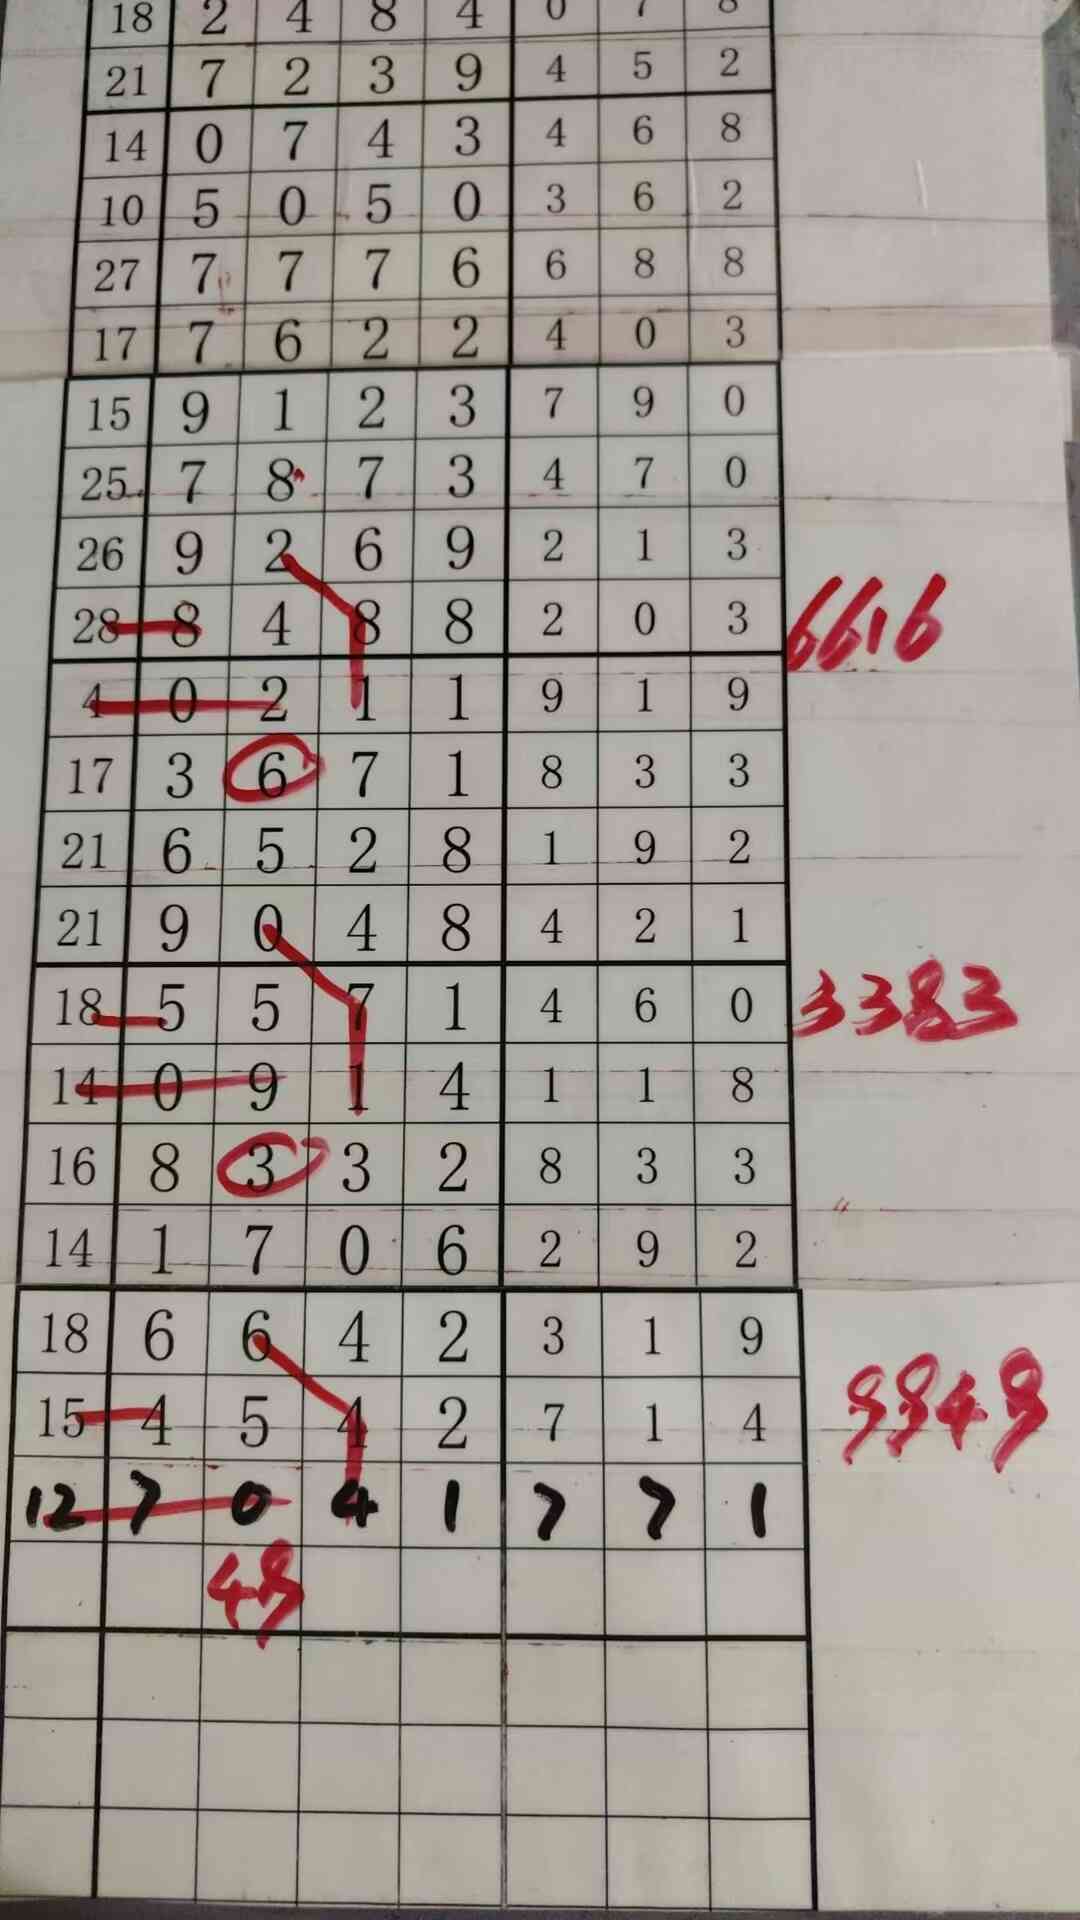 18 2 4 8 4 0 7 8
21 7 2 3 9 4 5 2
14 0 7 4 3 4 6 8
10 5 0 5 0 3 6 2
27 7 7 7 6 6 8 8
17 7 6 2 2 4 0 3
15 9 1 2 3 7 9 0
25 7 8 7 3 4 7 0
26 9 2 6 9 2 1 3
28 8 4 8 8 2 0 3 6616
4 0 2 1 1 9 1 9
17 3 6 7 1 8 3 3
21 6 5 2 8 1 9 2
21 9 0 4 8 4 2 1
18 5 5 7 1 4 6 0 3383
14 0 9 1 4 1 1 8
16 8 3 3 2 8 3 3
14 1 7 0 6 2 9 2
18 6 6 4 2 3 1 9
15 4 5 4 2 7 1 4 9949
12 7 0 4 1 7 7 1
49